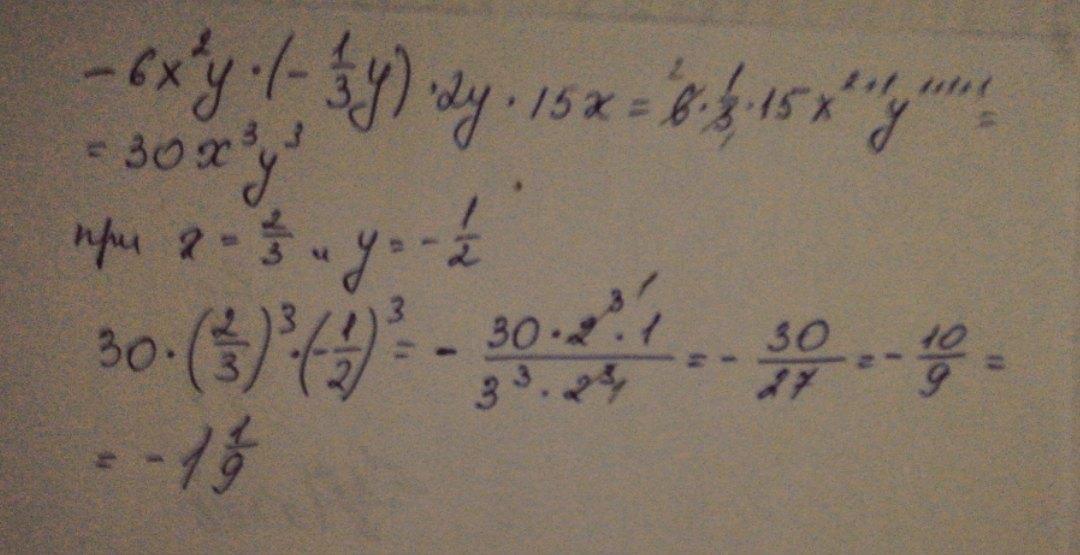 -6x²y · (-1/3y) · 2y · 15x = 6 · 1/3 · 15x²⁺¹y¹⁺¹⁺¹ =
= 30x³y³
при x = 2/3 и y = -1/2
30 · (2/3)³ · (-1/2)³ = - 30 · 2³ · 1 / 3³ · 2³ = - 30/27 = - 10/9 =
= - 1 1/9